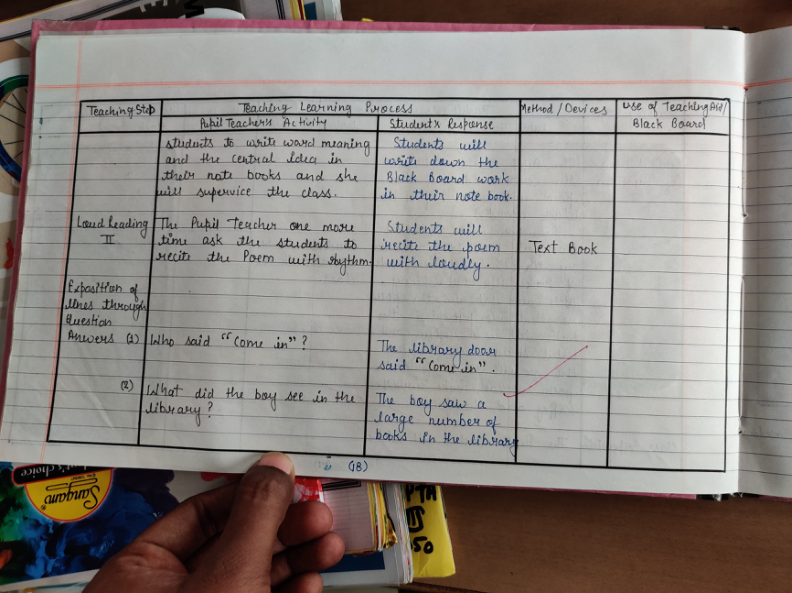 Teaching Step
Teaching Learning Process
Method/Devices
Use of Teaching Aid/
Black Board
Pupil Teacher's Activity
Student's Response
students to write word meaning
and the central idea in
their note books and she
will supervice the class.
Students will
write down the
Black Board work
in their note book.
Loud Reading
II
The Pupil Teacher one more
time ask the students to
recite the Poem with rhythm
Students will
recite the poem
with loudly.
Text Book
Exposition of
lines through
Question
Anwers (1)
Who said "Come in"?
The library door
said "Come in".
(2)
What did the boy see in the
library?
The boy saw a
large number of
books in the library
(18)
's choice
Sangam
50